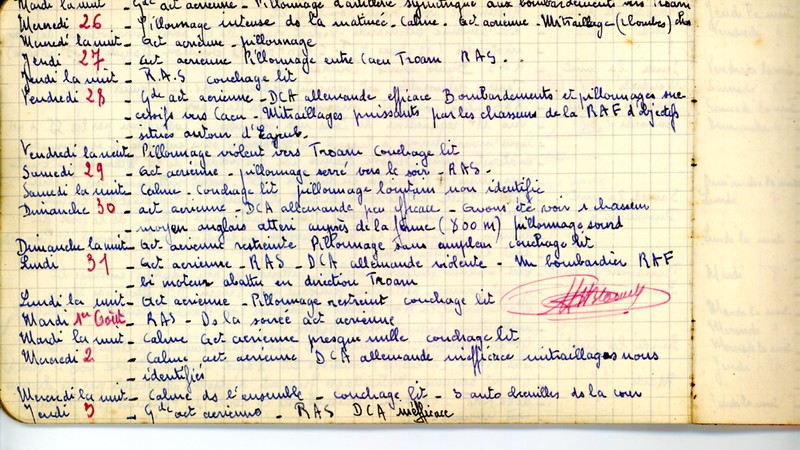 Mardi la nuit - Gde act aerienne - Pillonnage d'artillerie symetrique aux bombardements vers Troarn
Mercredi 26 - Pillonnage intense de la matinée - Calme - act aerienne - Mitraillage (2 bombes)
Mercredi la nuit - act aerienne - pillonnage
Jeudi 27 - act aerienne Pillonnage entre Caen Troarn RAS . .
Jeudi la nuit - R.A.S couchage lit
Vendredi 28 - Gde act aerienne - DCA allemande efficace Bombardements et pillonnages suc-
cessifs vers Caen - Mitraillages puissants par les chasseurs de la RAF d'objectifs
- situés autour d'
Vendredi la nuit Pillonnage violent vers Troarn couchage lit
Samedi 29 - act aerienne - pillonnage serré vers le soir - RAS -
Samedi la nuit - Calme - couchage lit pillonnage lointain non identifié
Dimanche 30 - act aerienne - DCA allemande peu efficace - Avons été voir 1 chasseur
- moyen anglais atteri auprès de la ferme (800 m) pillonnage sourd
Dimanche la nuit - act aerienne restreinte Pillonnage sans ampleur couchage lit
Lundi 31 - act aerienne - RAS - DCA allemande violente - Un bombardier RAF
- bi moteur abattu en direction Troarn
Lundi la nuit - act aerienne - Pillonnage restreint couchage lit
Mardi 1er Août - RAS - Ds la soirée act aerienne
Mardi la nuit - Calme act aerienne presque nulle couchage lit
Mercredi 2 - Calme act aerienne DCA allemande inefficace mitraillages nons
- identifiés
Mercredi la nuit - Calme ds l'ensemble - couchage lit - 3 auto chenilles ds la cour
Jeudi 3 - Gde act aerienne - RAS DCA inéfficace